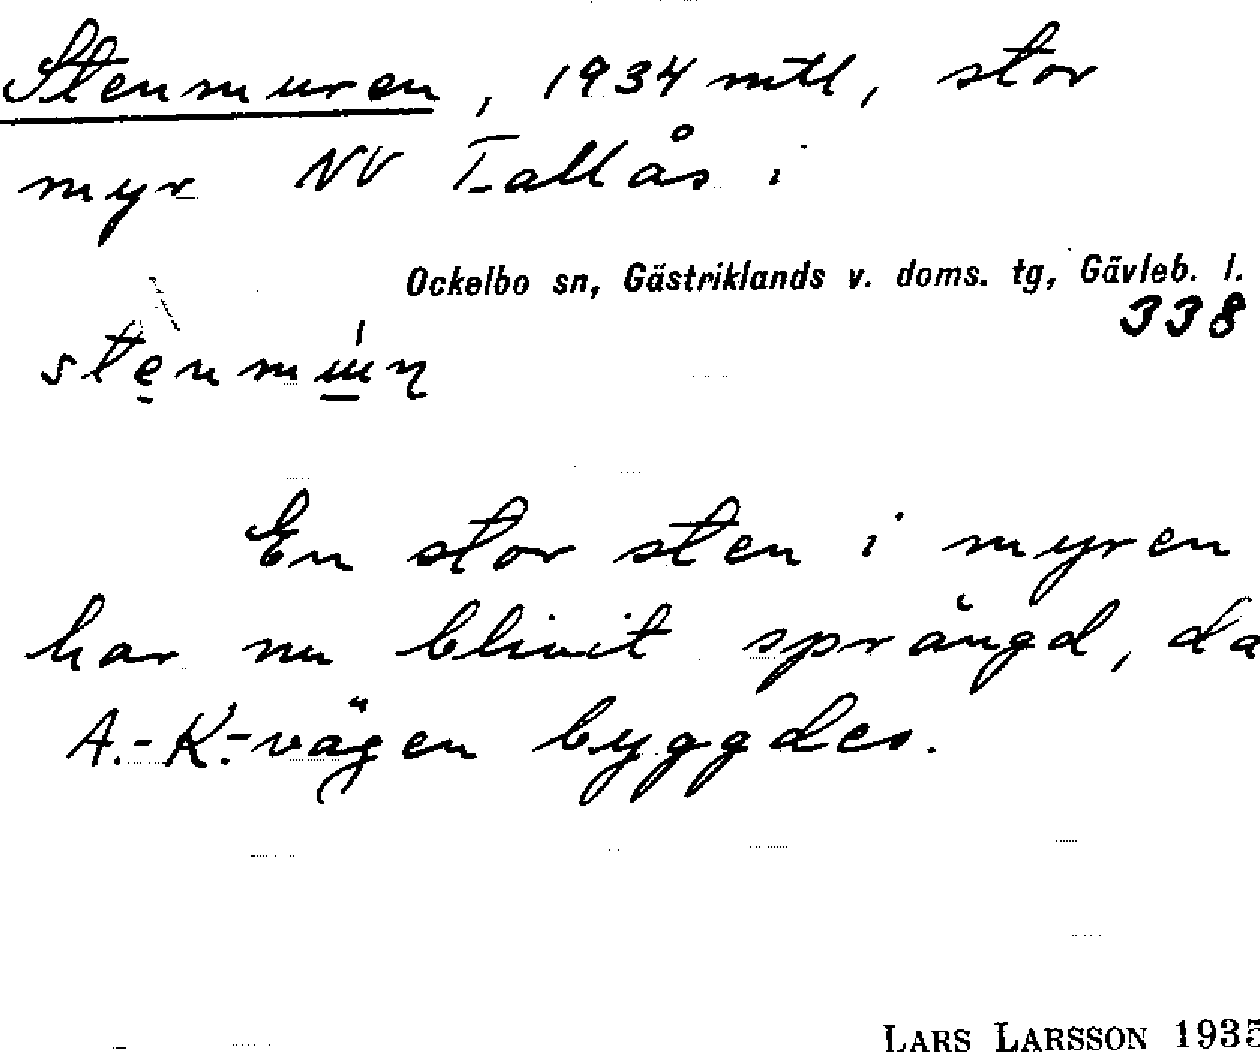 Stenmuren, 1934 mtl, stor
myr NV Tallås i
Ockelbo sn, Gästriklands v. doms. tg, Gävleb. l.
338
En stor sten i myren
har nu blivit sprängd, då
A.-K.-vägen byggdes.
LARS LARSSON 1935